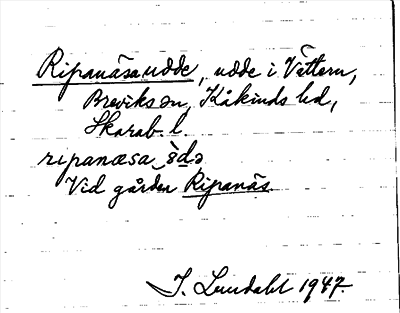 Ripanäsaudde, udde i Vättern,
Breviks sn, Kåkinds hd,
Skarab. l.
ripanæsa ùdə
Vid gården Ripanäs.
I. Lundahl 1947.